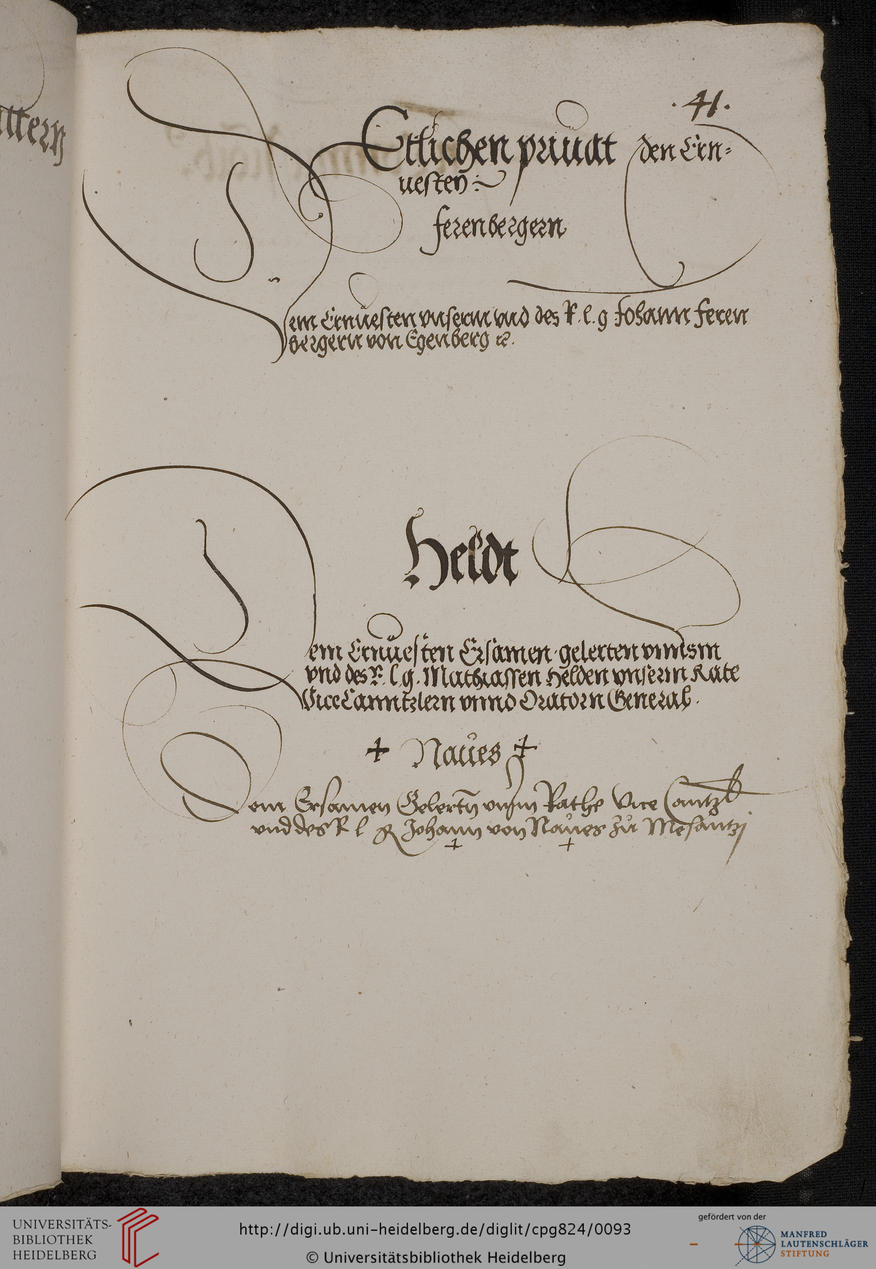 41.
Etlichen priuat den Ern-
uesten
ferenbergern
Dem Ernuesten vnserm vnd des R. l. g Johann feren
bergern von Egenberg ⁊c.
Heldt
Dem Ernuesten Ersamen gelerten vnnserm
vnd des R. l. g. Mathiassen Helden vnserm Rate
ViceCanntzlern vnnd Oratorn General.
+ Naues +
Dem Ersamen Gelertn vnserm Rathe Vice Cantzl
vnd des R l g Johann von Naues zu Mesantzj
UNIVERSITÄTS-
BIBLIOTHEK
HEIDELBERG
http://digi.ub.uni-heidelberg.de/diglit/cpg824/0093
© Universitätsbibliothek Heidelberg
gefördert von der
MANFRED
LAUTENSCHLÄGER
STIFTUNG